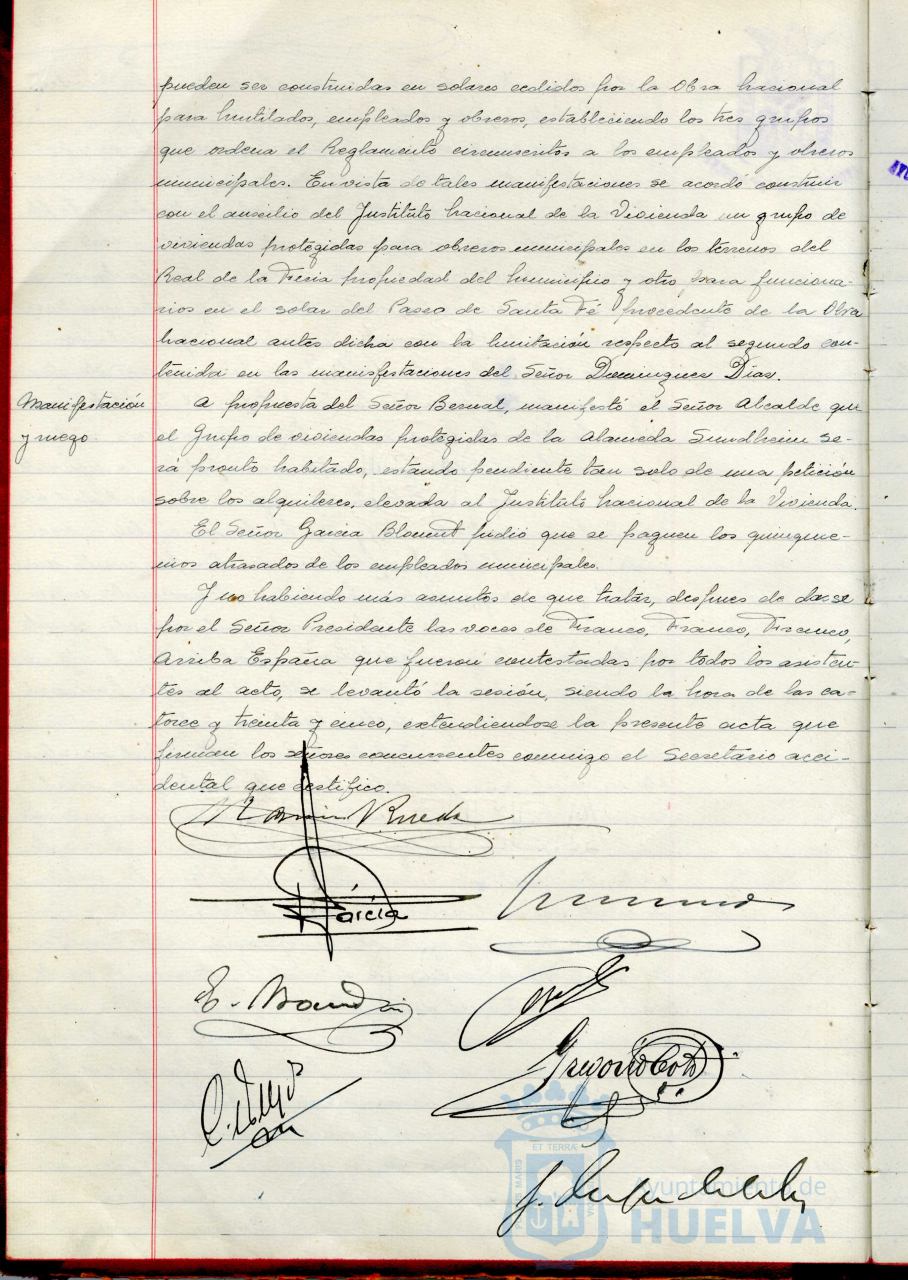 pueden ser construidas en solares cedidos por la Obra Nacional
para Mutilados, empleados y obreros, estableciendo los tres grupos
que ordena el Reglamento circunscritos a los empleados y obreros
municipales. En vista de tales manifestaciones se acordó construir
con el auxilio del Instituto Nacional de la Vivienda un grupo de
viviendas protegidas para obreros municipales en los terrenos del
Real de la Feria propiedad del Municipio y otro para funciona-
rios en el solar del Paseo de Santa Fé procedente de la Obra
Nacional antes dicha con la limitación respecto al segundo con-
tenida en las manifestaciones del Señor Dominguez Diaz.
Manifestación
y ruego.
A propuesta del Señor Bernal, manifestó el Señor Alcalde que
el Grupo de viviendas protegidas de la Alameda Sundheim se-
rá pronto habitado, estando pendiente tan solo de una petición
sobre los alquileres, elevada al Instituto Nacional de la Vivienda.
El Señor Garcia Blount pidió que se paguen los quinque-
nios atrasados de los empleados municipales.
Y no habiendo más asuntos de que tratar, despues de darse
por el Señor Presidente las voces de Franco, Franco, Franco,
Arriba España que fueron contestadas por todos los asisten-
tes al acto, se levantó la sesión, siendo la hora de las ca-
torce y treinta y cinco, extendiendose la presente acta que
firman los señores concurrentes conmigo el Secretario acci-
dental que certifico.
Rueda
García
E.
Gregorio
J.
ET TERRÆ
PORTUS MARIS
Ayuntamiento de
HUELVA